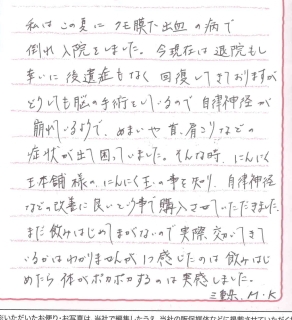 私はこの夏にクモ膜下出血の病で
倒れ入院をしました。今現在は退院もし
幸いに後遺症もなく回復してきておりますが
どうしても脳の手術をしているので自律神経が
崩れているようで、めまいや首、肩こりなどの
症状が出て困っていました。そんな時、にんにく
玉本舗様の、にんにく玉の事を知り、自律神経
などの改善に良いという事で購入させていただきました
まだ飲みはじめてまもないので実際、効いてきて
いるかはわかりませんが1つ感じたのは飲みはじ
めたら体がポカポカするのは実感しました。
三重県、M・K
いただいたお便り・お写真は、当社で編集したうえ、当社の販促媒体などに掲載させていただく